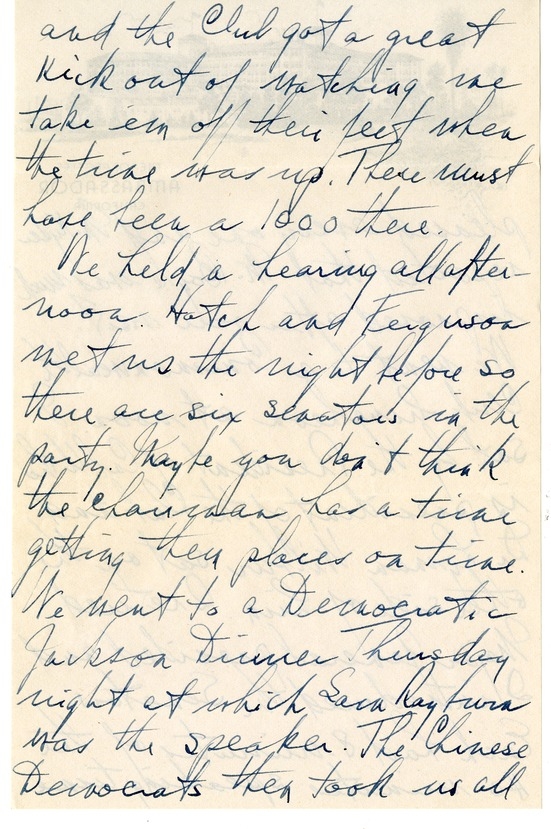 and the Club got a great
kick out of watching me
take em off their feet when
the time was up. There must
have been a 1000 there.
We held a hearing all after-
noon. Hatch and Ferguson
met us the night before so
there are six senators in the
party. Maybe you don't think
the chairman has a time
getting them places on time.
We went to a Democratic
Jackson Dinner Thursday
night at which Sam Rayburn
was the speaker. The Chinese
Democrats then took us all